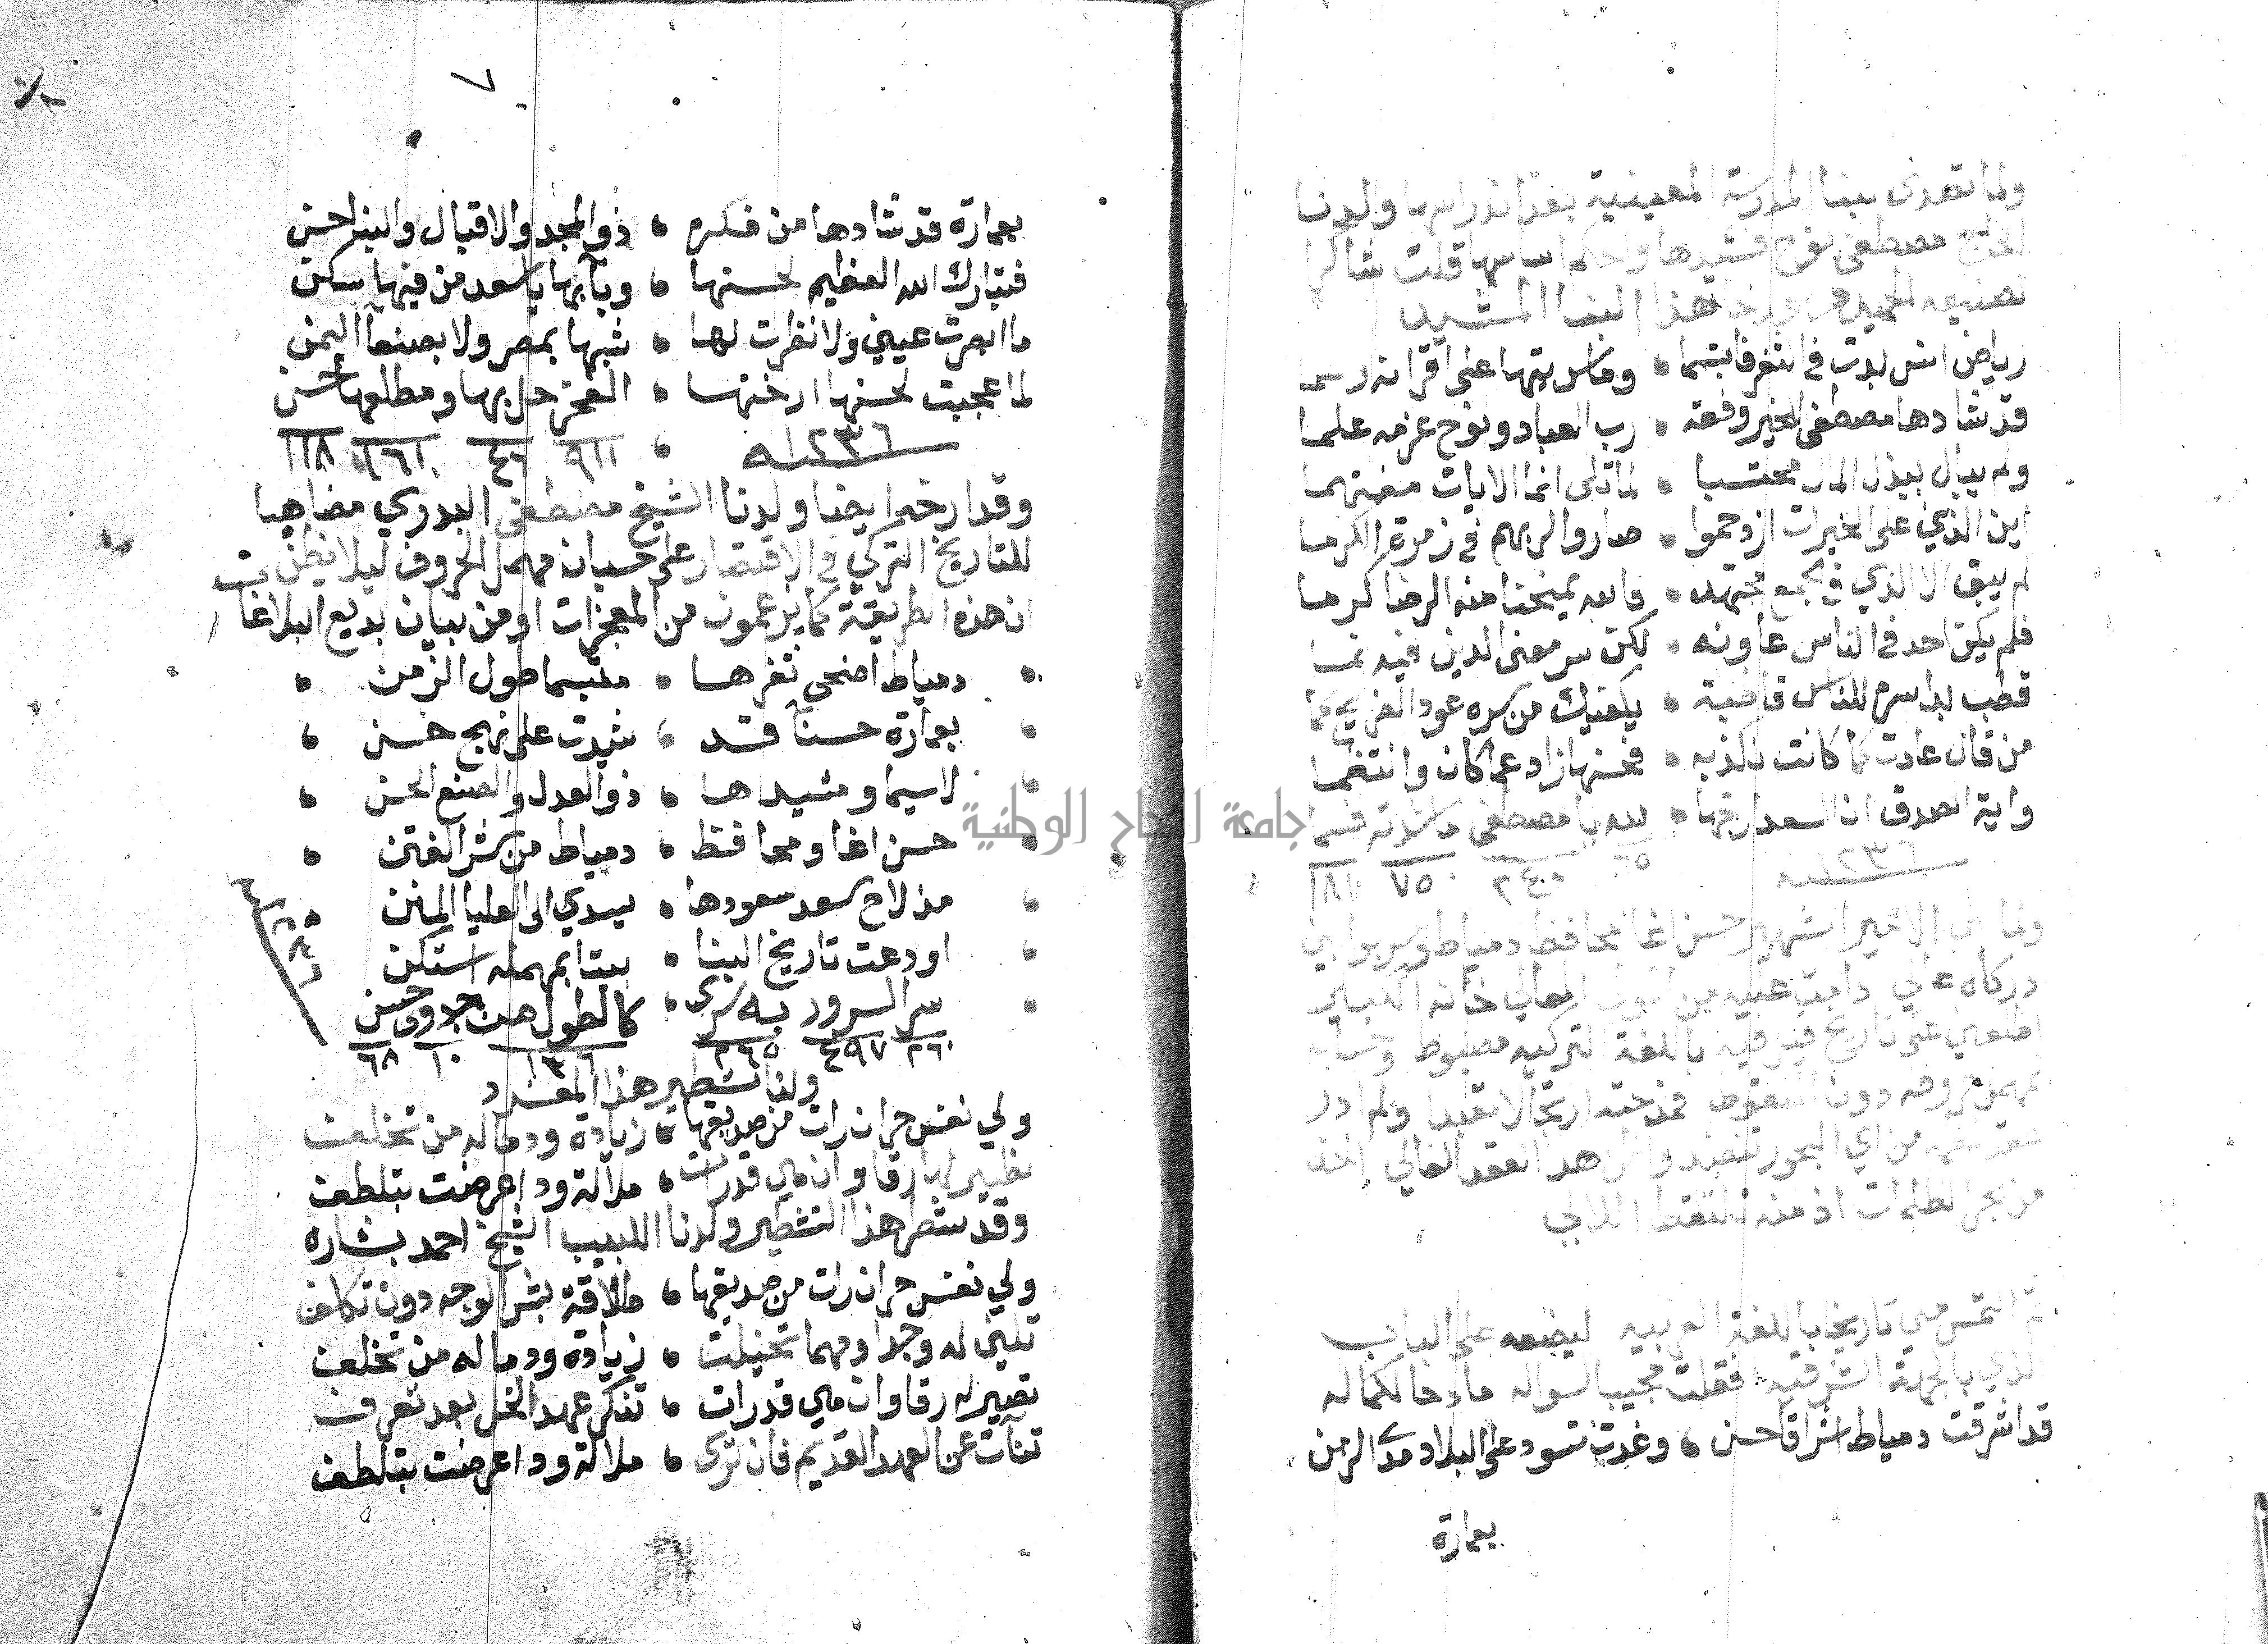 ولما تصدى لبنا المدرسة المعينية بعد اندراسها ولدنا
الحاج مصطفى نوح فشيدها واحكم اساسها قلت شاكرا
لصنيعه الحميد ومورخا هذا البنا المشيد
رياض انس بدت في الثغر فابتسما • وماس تيها على اقرانه وسما
قد شادها مصطفى الخير وفقه • رب العباد ونوح عزمه علما
ولم يبال ببذل المال محتسبا • لما تلى انما الايات مغتنما
اين الذين على الخيرات ازدحموا • صاروا لربهم في زمرة الكرما
لم يبق الا الذي في الجمع مجتهد • فالله يمنحنا منه الرضا كرما
فلم يكن احد في الناس عاونه • لكن سر معنى الدين فيه نما
قطب بدا سره للناس قاطبة • يكفيك من سره عود الضريح
من قال عادت كما كانت نكذبه • فحسنها زاد عما كان وانتظما
واية الصدق ان السعد ارخها • لله يا مصطفى ما شدته قسما
١٢٣٦ ٦٥ ٢٤٠ ٧٥٠ ١٨١
الامير الشهير حسن اغا محافظ دمياط
دركاه عالي
على تاريخ فيه باللغة التركيه مضبوط وحسابه
بمهمل حروفه دون المنقوط
من اي البحور هذا العقد الغالي
من بحر الظلمات اذ منه تلتقط اللالي
ثم التمس مني تاريخا باللغة العربيه ليضعه على الباب
الذي بالجهة الشرقيه فقلت مجيبا لسواله مادحا لكماله
قد اشرقت دمياط اشراقا حسن • وغدت تسود على البلاد مدى الزمن
بعمارة
٧
بعمارة قد شادها من فكره • ذو المجد والاقبال والبذل الحسن
فتبارك الله العظيم لحسنها • وبابها يا سعد من فيها سكن
ما ابصرت عيني ولا نظرت لها • شبها بمصر ولا بصنعآ اليمن
لما عجبت لحسنها ارختها • الفخر حل بها ومطلعها حسن
١٢٣٦ ٩١١ ٤٦ ١٦١ ١١٨
وقد ارخها ايضا ولدنا الشيخ مصطفى البدري مضاهيا
للتاريخ التركي في الاقتصار على حسبان مهمل الحروف ليلا يظن
ان هذه الطريقة كما يزعمون من المعجزات او من بيان بديع البلاغات
دمياط اضحى ثغرها • متبسما طول الزمن
بعمارة حسنآ قد • شيدت على نهج حسن
لاسيما ومشيدها • ذو العدل والصنع الحسن
حسن اغا ومحافظ • دمياط من شر الفتن
مذ لاح سعد سعودها • يسدي الى العليا المنن
اودعت تاريخ البنا • بيتا بمهمله استكن
١٢٣٦
سر السرور به سرى • كالطول من جدوى حسن
٢٦٠ ٤٩٧ ٢٦٥ ١٣٦ ١٠ ٦٨
ولنا تشطير هذا المفرد
ولي نفس حر ان رات من صديقها • زيادة ود ماله من تخلف
تطير لها رقا وان هي قد رات • ملالة ود اعرضت بتلطف
وقد شطر هذا التشطير ولدنا اللبيب الشيخ احمد بشاره
ولي نفس حر ان رات من صديقها • طلاقة بشر الوجه دون تكلف
تلين له وجدا ومهما تخيلت • زيادة ود ماله من تخلف
تصير له رقا وان هي قد رات • تنكر عهد الخل بعد تعرف
تنآت عن العهد القديم فان ترى • ملالة ود اعرضت بتلطف
جامعة النجاح الوطنية